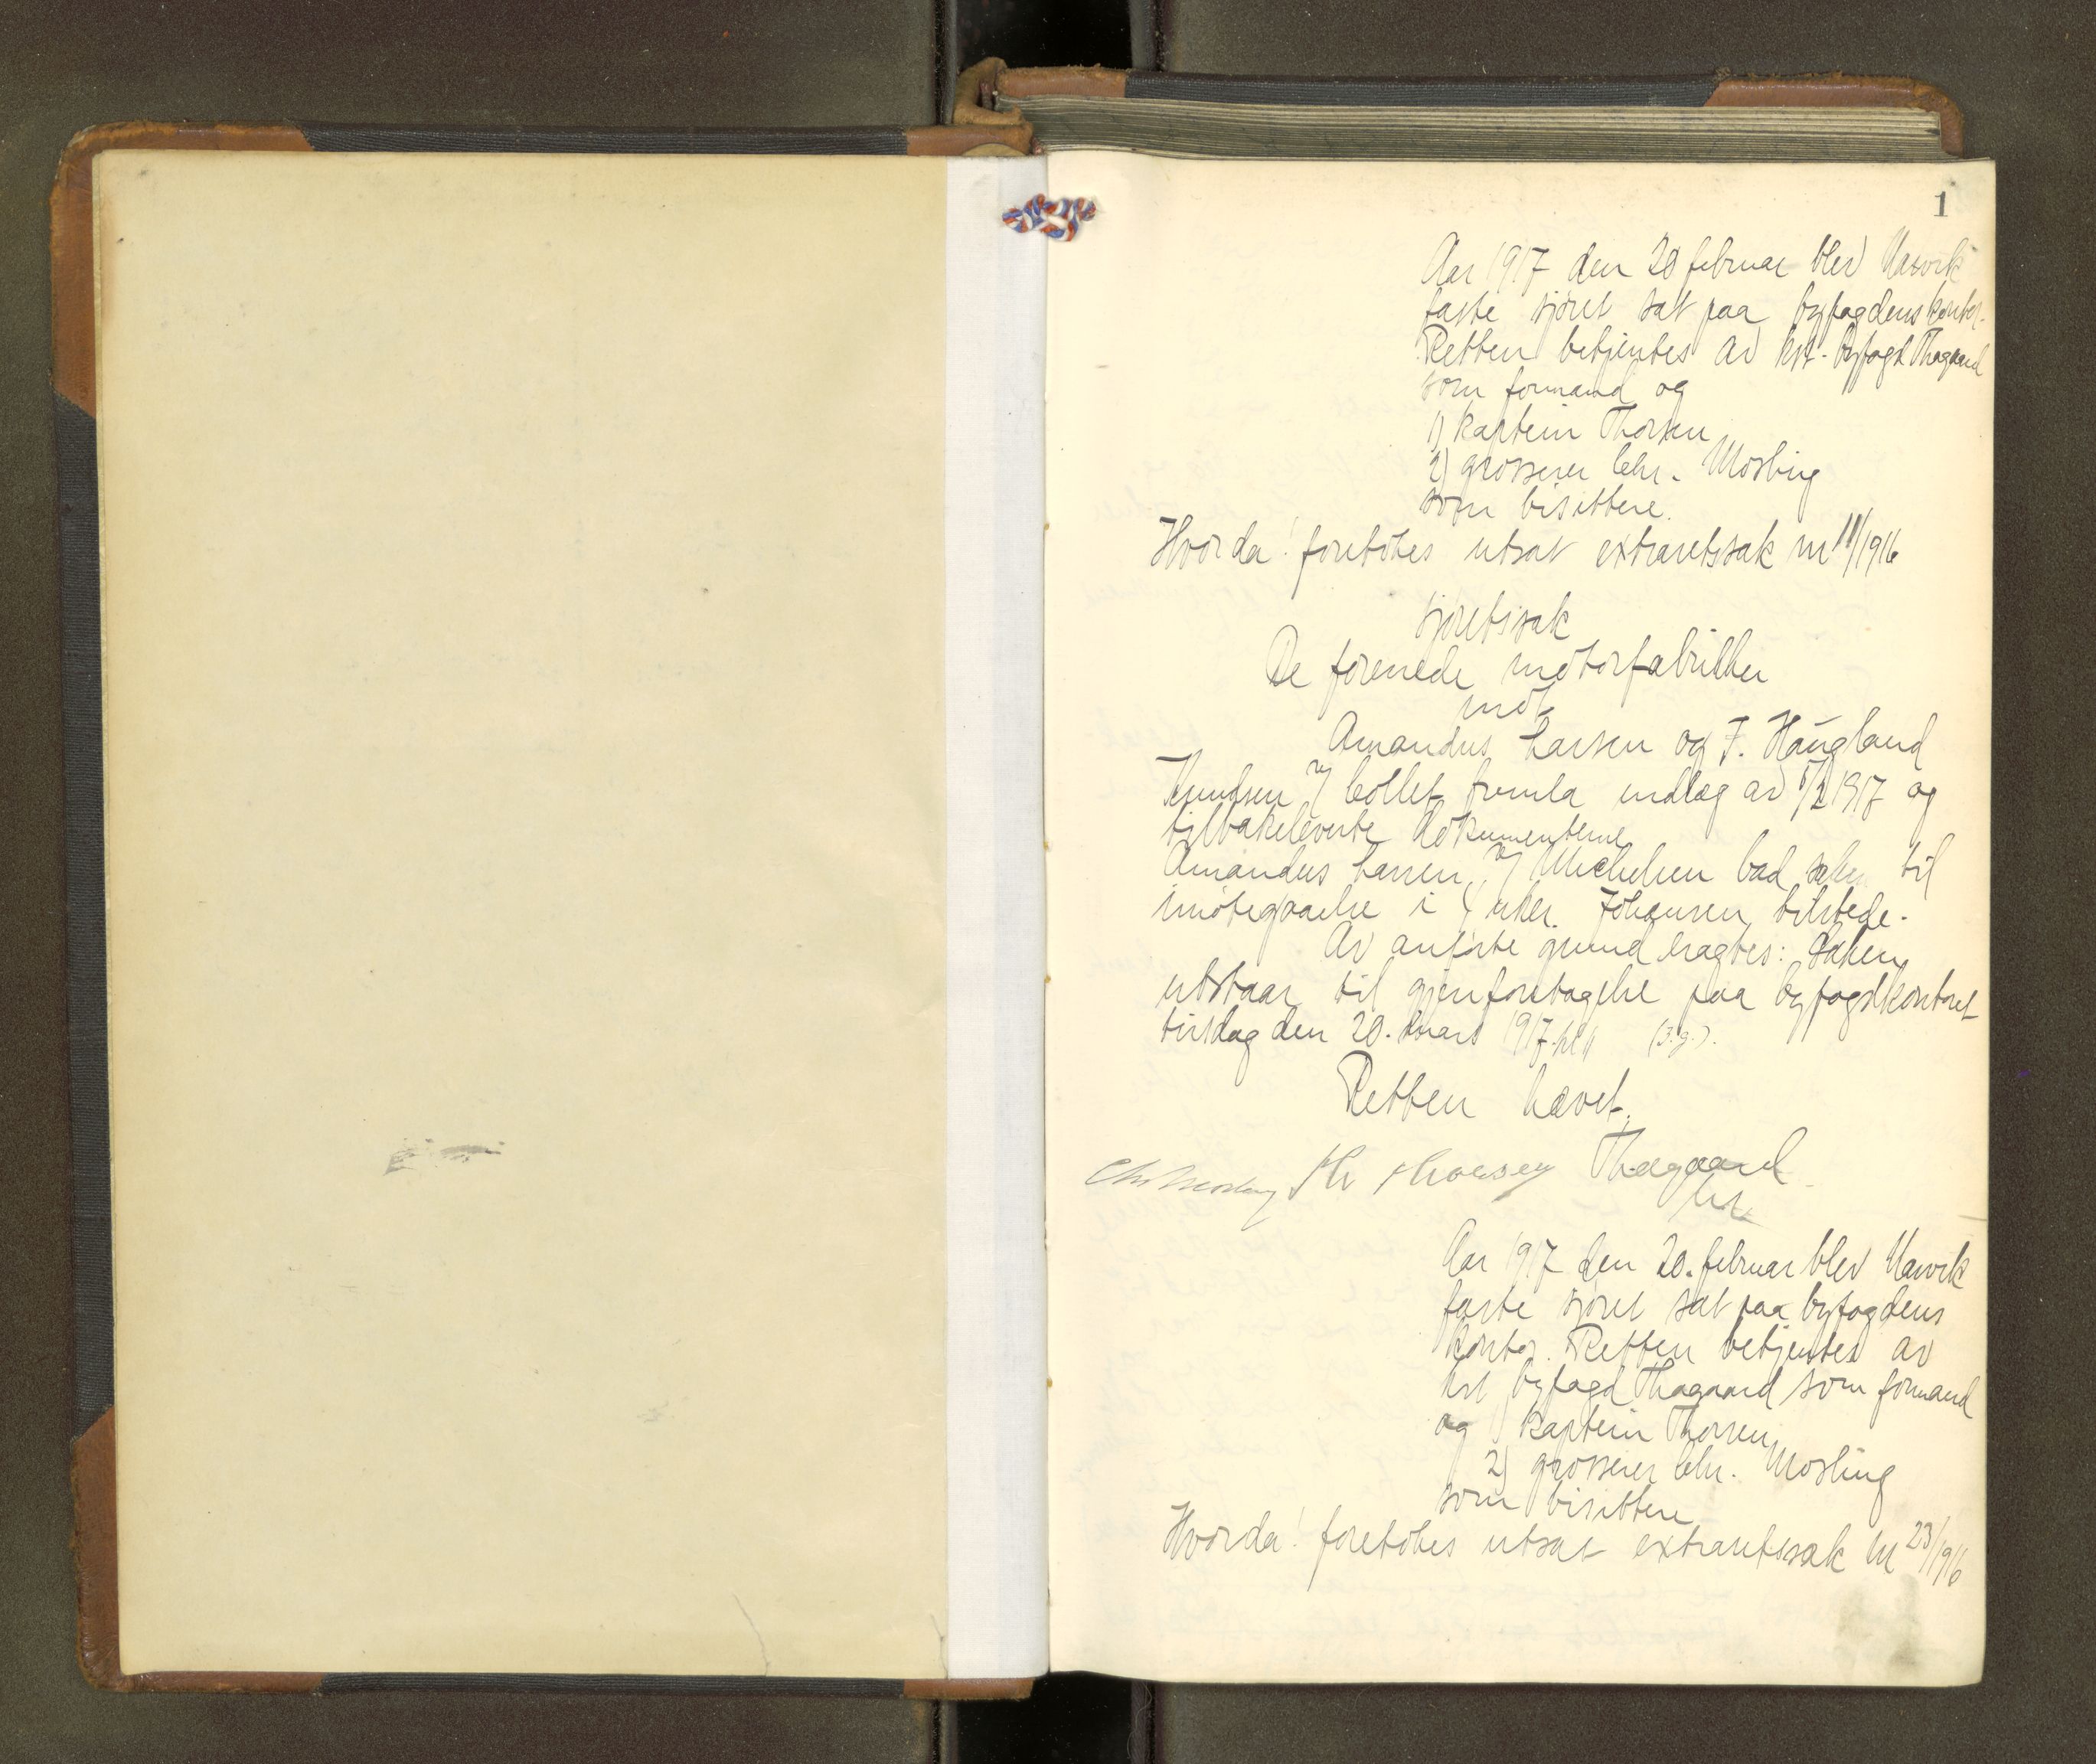 1
Aar 1917 den 20 februar blev Narvik
faste sjøret sat paa byfogdens kontor.
Retten betjentes av kst. byfogd Thagaard
som formand og
1) kaptein Thorsen
2) grosserer Chr. Mosling
som bisittere.
Hvorda! foretokes utsat extraretssak nr 11/1916
sjøretssak
De forenede motorfabrikker
mot
Amandus Larsen og F. Haugland
Knudsen v/ Collet fremla indlæg av 1/2 1917 og
tilbakeleverte dokumenterne
Amandus Larsen v/ Michelsen bad saken til
imøtegaaelse i 4 uker. Johansen tilstede.
Av anførte grund eragtes: Saken
utstaar til gjenforetagelse paa byfogdkontoret
tirsdag den 20. mars 1917 kl 11 (3.g.).
Retten hævet.
Chr Mosling Thorsen Thagaard
kst.
Aar 1917 den 20. februar blev Narvik
faste sjøret sat paa byfogdens
kontor. Retten betjentes av
kst byfogd Thagaard som formand
og 1) kaptein Thorsen
2) grosserer Chr. Mosling
som bisittere
Hvorda! foretokes utsat extraretssak nr 23/1916